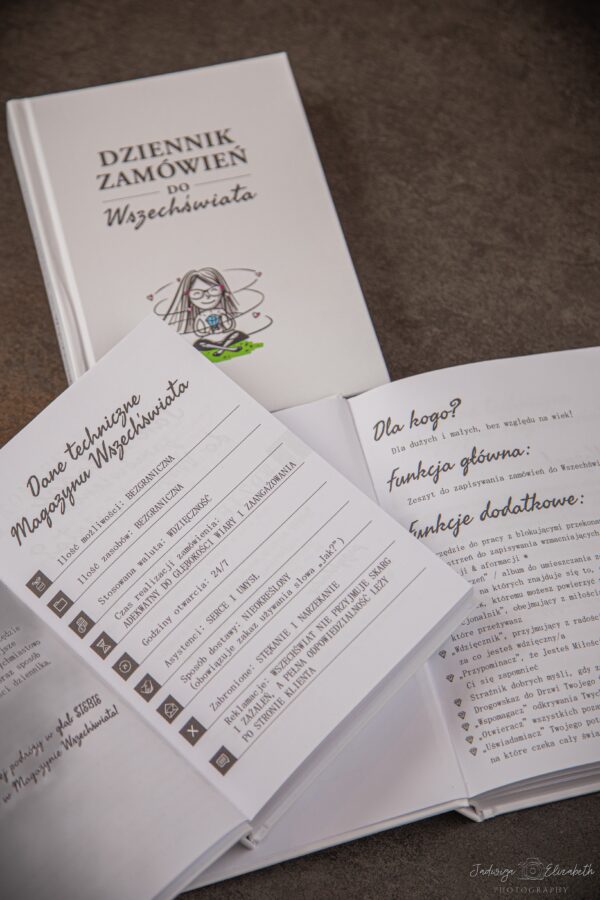 DZIENNIK
ZAMÓWIEŃ
DO
Wszechświata
Dane techniczne
Magazynu Wszechświata
Ilość możliwości: BEZGRANICZNA
Ilość zasobów: BEZGRANICZNA
Stosowana waluta: WDZIĘCZNOŚĆ
Czas realizacji zamówienia:
ADEKWATNY DO GŁĘBOKOŚCI WIARY I ZAANGAŻOWANIA
Godziny otwarcia: 24/7
Asystenci: SERCE I UMYSŁ
Sposób dostawy: NIEOKREŚLONY
(obowiązuje zakaz używania słowa „Jak?")
Zabronione: STĘKANIE I NARZEKANIE
Reklamacje: WSZECHŚWIAT NIE PRZYJMUJE SKARG
I ZAŻALEŃ, A PEŁNA ODPOWIEDZIALNOŚĆ LEŻY
PO STRONIE KLIENTA
oraz sposób
ści dziennika.
ej podróży w głąb SIEBIE
w Magazynie Wszechświata!
Dla kogo?
Dla dużych i małych, bez względu na wiek!
Funkcja główna:
Zeszyt do zapisywania zamówień do Wszechświ
Funkcje dodatkowe:
zędzie do pracy z blokującymi przekona
strzeń do zapisywania wzmacniających
ji & aformacji *
/ album do umieszczania z
na których znajduje się to,
k, któremu możesz powierzyć
cjonalnik", obejmujący z miłości
które przeżywasz
„Wdzięcznik", przyjmujący z radości
za co jesteś wdzięczny/a
„Przypominacz", że Jesteś Miłości
Ci się zapomnieć
Strażnik dobrych myśli, gdy z
Drogowskaz do Drzwi Twojego
„Wspomagacz" odkrywania Twych
„Otwieracz" wszystkich poza
„Uświadamiacz" Twojego pot
na które czeka cały świa
Jadwiga Elizabeth
PHOTOGRAPHY